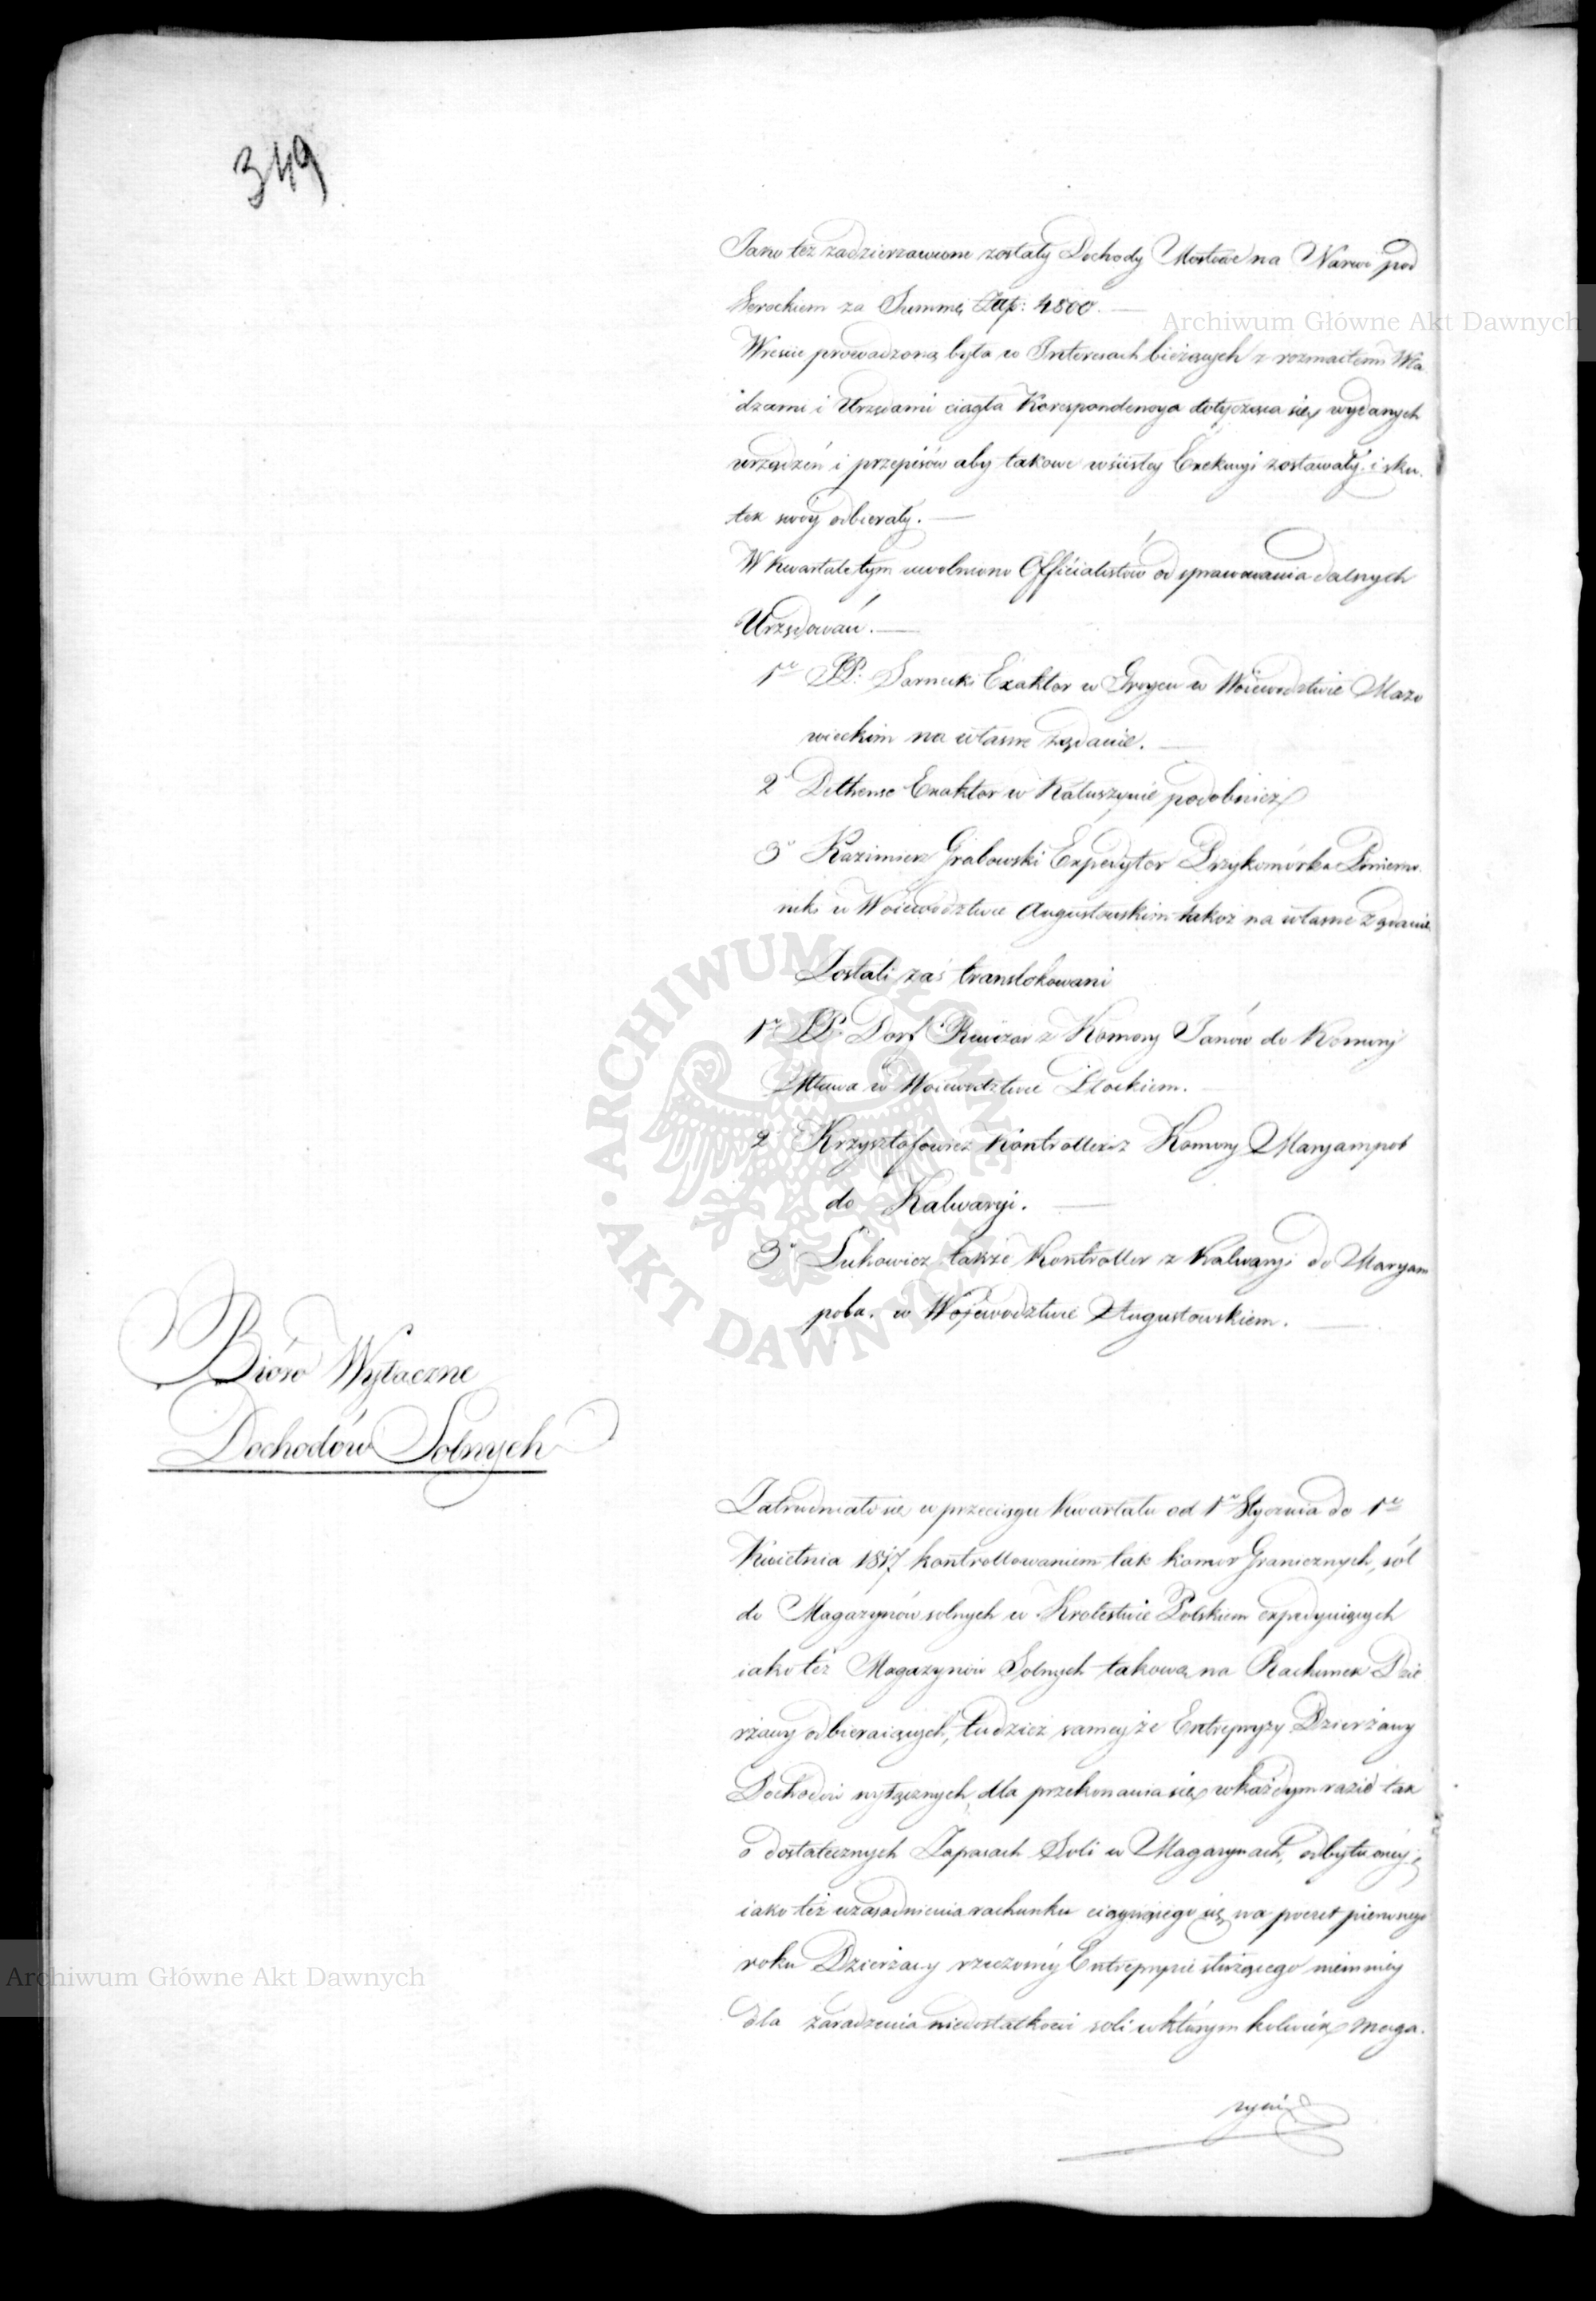 349
Jako też zadzierzawione zostały Dochody Mostowe na Narwi pod
Serockiem za Summę Złp: 4800. —
Wreście prowadzoną była w Interesach bieżących z rozmaitemi Wła
dzami i Urzędami ciągła Korespondencya dotycząca się wydanych
urządzeń i przepisów aby takowe w ścisłey Exekucyi zostawały i sku
tek swóy odbierały. —
W Kwartale tym uwolniono Officialistów od sprawowania dalszych
Urzędowań. —
1º PP. Sarnecki Exaktor w Grojcu w Woiewództwie Mazo
wieckim na własne żądanie. —
2º Exaktor w Kałuszynie podobnież
3º Kazimierz Grabowski Expedytor Przykomórka
w Woiewództwie Augustowskim takoż na własne żądanie
Zostali zaś translokowani
1º PP. Rewizor z Komory Janów do Komory
Mława w Woiewództwie Płockiem.
2º Krzysztofowicz Kontroller z Komory Maryampol
do Kalwaryi. —
3º Lukowicz także Kontroller z Kalwaryi do Maryam
pola. w Wojewodztwie Augustowskiem. —
Bióro Wyłaczne
Dochodów Solnych
Zatrudniało się w przeciągu Kwartału od 1º Stycznia do 1º
Kwietnia 1817 kontrollowaniem tak komor Granicznych, sól
do Magazynów solnych w Krolestwie Polskiem expedyuiących
iako też Magazynów Solnych takową na Rachunek Dzie
rżawy odbieraiących, tudzież samey że Entrepryzy Dzierżawy
Dochodów wyłącznych, dla przekonania się w każdym razie tak
o dostatecznych Zapasach Soli w Magazynach, odbytu oney
iako też uzasadnienia rachunku ciągnącego się na poczet pierwszego
roku Dzierżawy rzeczonéy Entrepryzie służącego niemniéy
dla zaradzenia niedostatkowi soli w którym kolwiek maga.
zynie
Archiwum Główne Akt Dawnych
Archiwum Główne Akt Dawnych
ARCHIWUM GŁÓWNE • AKT DAWNYCH •